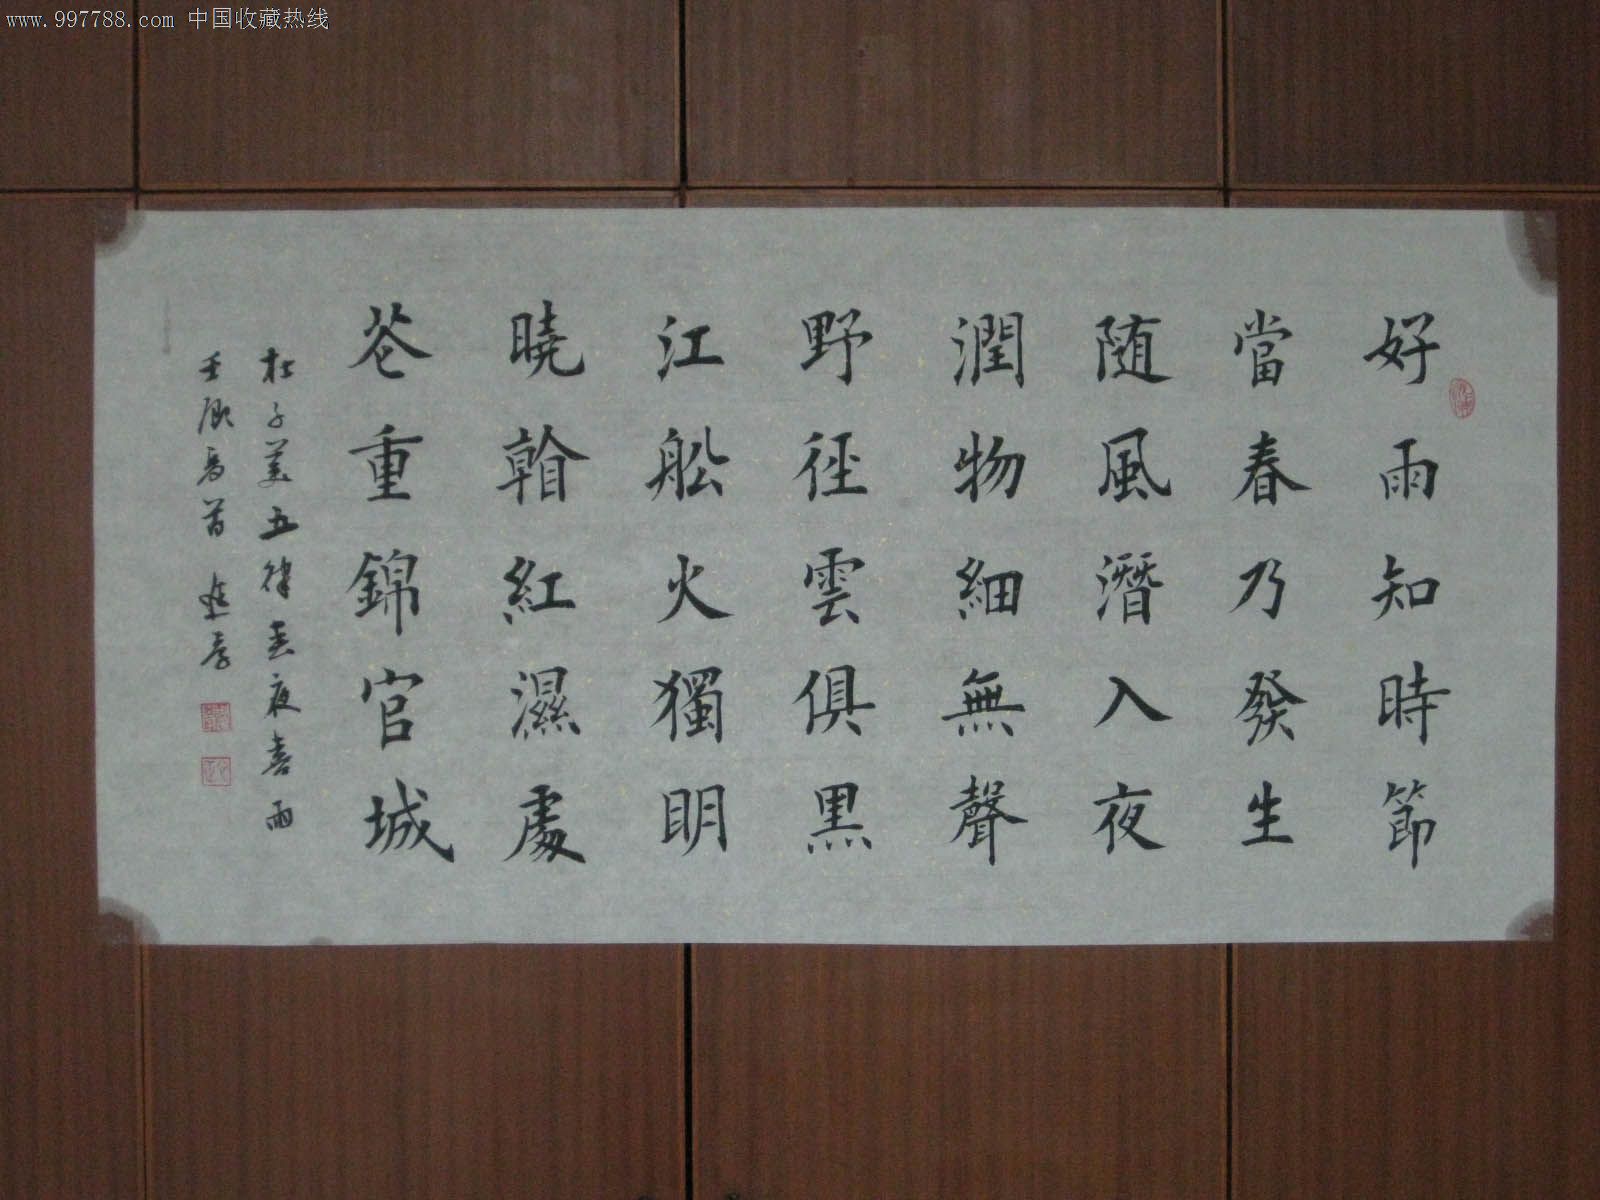 www.997788.com 中国收藏热线
好雨知時節
當春乃發生
随風潛入夜
潤物細無聲
野径雲俱黒
江舩火獨明
曉看紅濕處
花重錦官城
杜子美五律春夜喜雨
壬辰